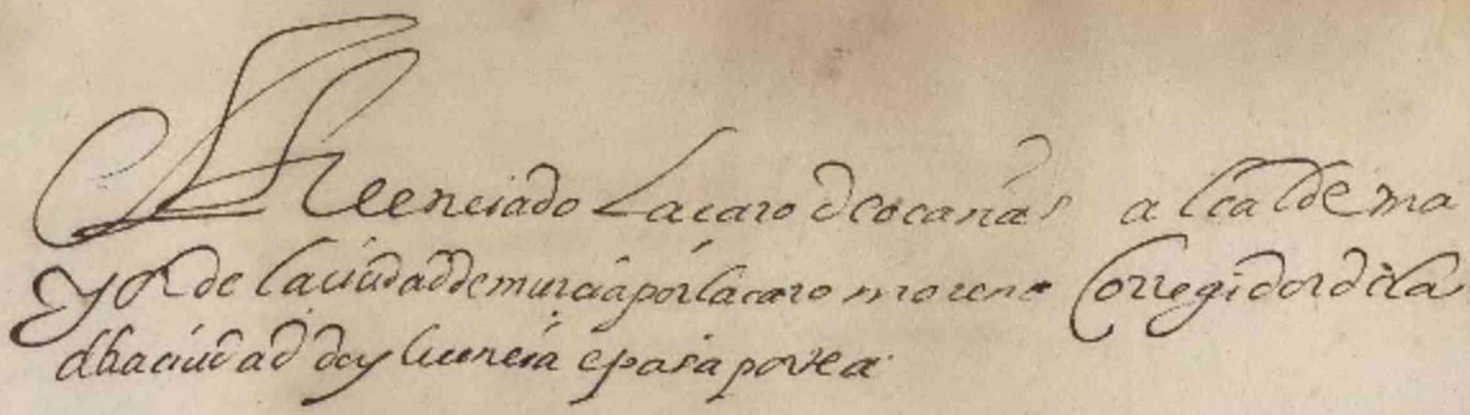 El licenciado Lacaro de ocaña alcalde ma
yor de la ciudad de murcia por lacaro moreno Corregidor de la
dha ciudad doy licencia e pasaporte a